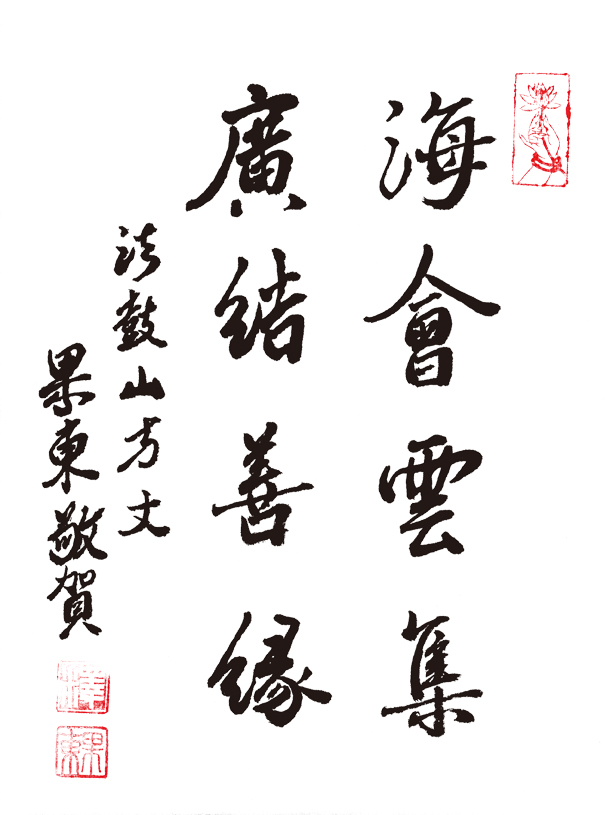 海會雲集
廣結善緣
法鼓山方丈
果東敬賀